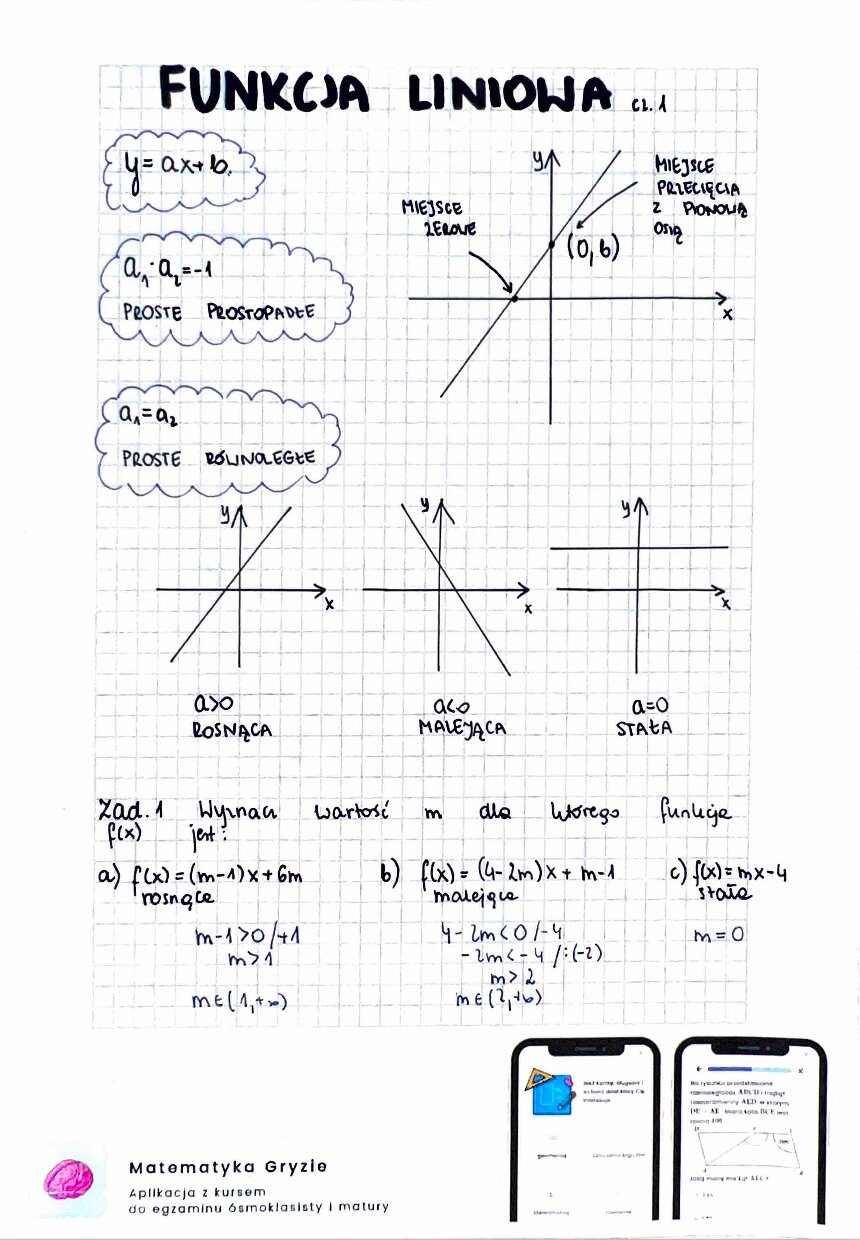 FUNKCJA LINIOWA cz. 1
y = ax + b.
a₁·a₂ = -1
PROSTE PROSTOPADŁE
a₁ = a₂
PROSTE RÓWNOLEGŁE
y
MIEJSCE
ZEROWE
MIEJSCE
PRZECIĘCIA
Z PIONOWĄ
OSIĄ
(0, b)
x
y
x
a>0
ROSNĄCA
y
x
a<0
MALEJĄCA
y
x
a=0
STAŁA
Zad. 1 Wyznacz wartość m dla którego funkcja
f(x) jest:
a) f(x) = (m-1)x + 6m
rosnąca
m-1>0 /+1
m>1
m∈(1,+∞)
b) f(x) = (4-2m)x + m-1
malejąca
4-2m<0 /-4
-2m<-4 /:(-2)
m>2
m∈(2,+∞)
c) f(x) = mx-4
stała
m = 0
Matematyka Gryzie
Aplikacja z kursem
do egzaminu ósmoklasisty i matury
Na rysunku przedstawiono
równoległobok ABCD i trójkąt
równoramienny AED w którym